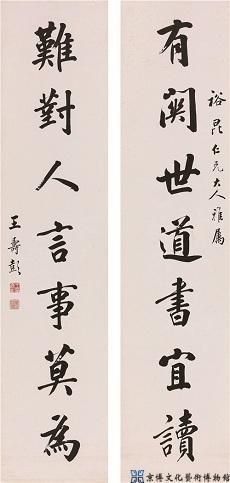 有關世道書宜讀
裕昆仁兄大人雅屬
難對人言事莫為
王壽彭
京博文化藝術博物館